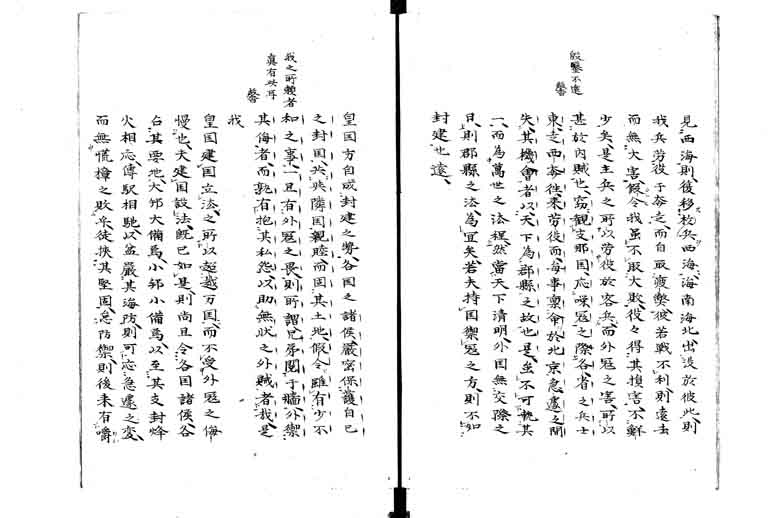 殷鑒不遠
馨
見西海則彼移於兵西海海南海北出没於彼此則
我兵労役于奔走而自取疲弊彼若戦不利則遠去
而無大害假令我虽不取大敗役々得其損害不鮮
少矣是主兵之所以労役於客兵而外寇之害所以
甚於内賊也窃観支那国応嘆寇之際各省之兵士
東走西奔往来労役而每事禀命於北京急遽之間
失其機會者以天下為郡縣之故也是豈不可執其
一而為萬世之法程然當天下清明外国無交際之
日則郡縣之法為宜矣若夫持国禦寇之方則不如
封建也遠
我之所頼者
真有此耳
馨
皇国方自成封建之勢各国之諸侯嚴密保護自已
之封国共與隣国親睦而固其土地假令雖有少不
和之事一旦有外寇之畏則所謂兄弟鬩于牆外禦
其侮者而孰有抱其私怨以助無状之外賊者哉是
我
皇国建国立法之所以超越万国而不受外寇之侮
慢也夫建国設法既已如是則尚且令各国諸侯各
占其要地大邦大備為小邦小備為以至其支封烽
火相応傳駅相馳以益嚴其海防則可応急遽之変
而無慌樟之敗矣徒挟其堅固怠防禦則後来有嚼